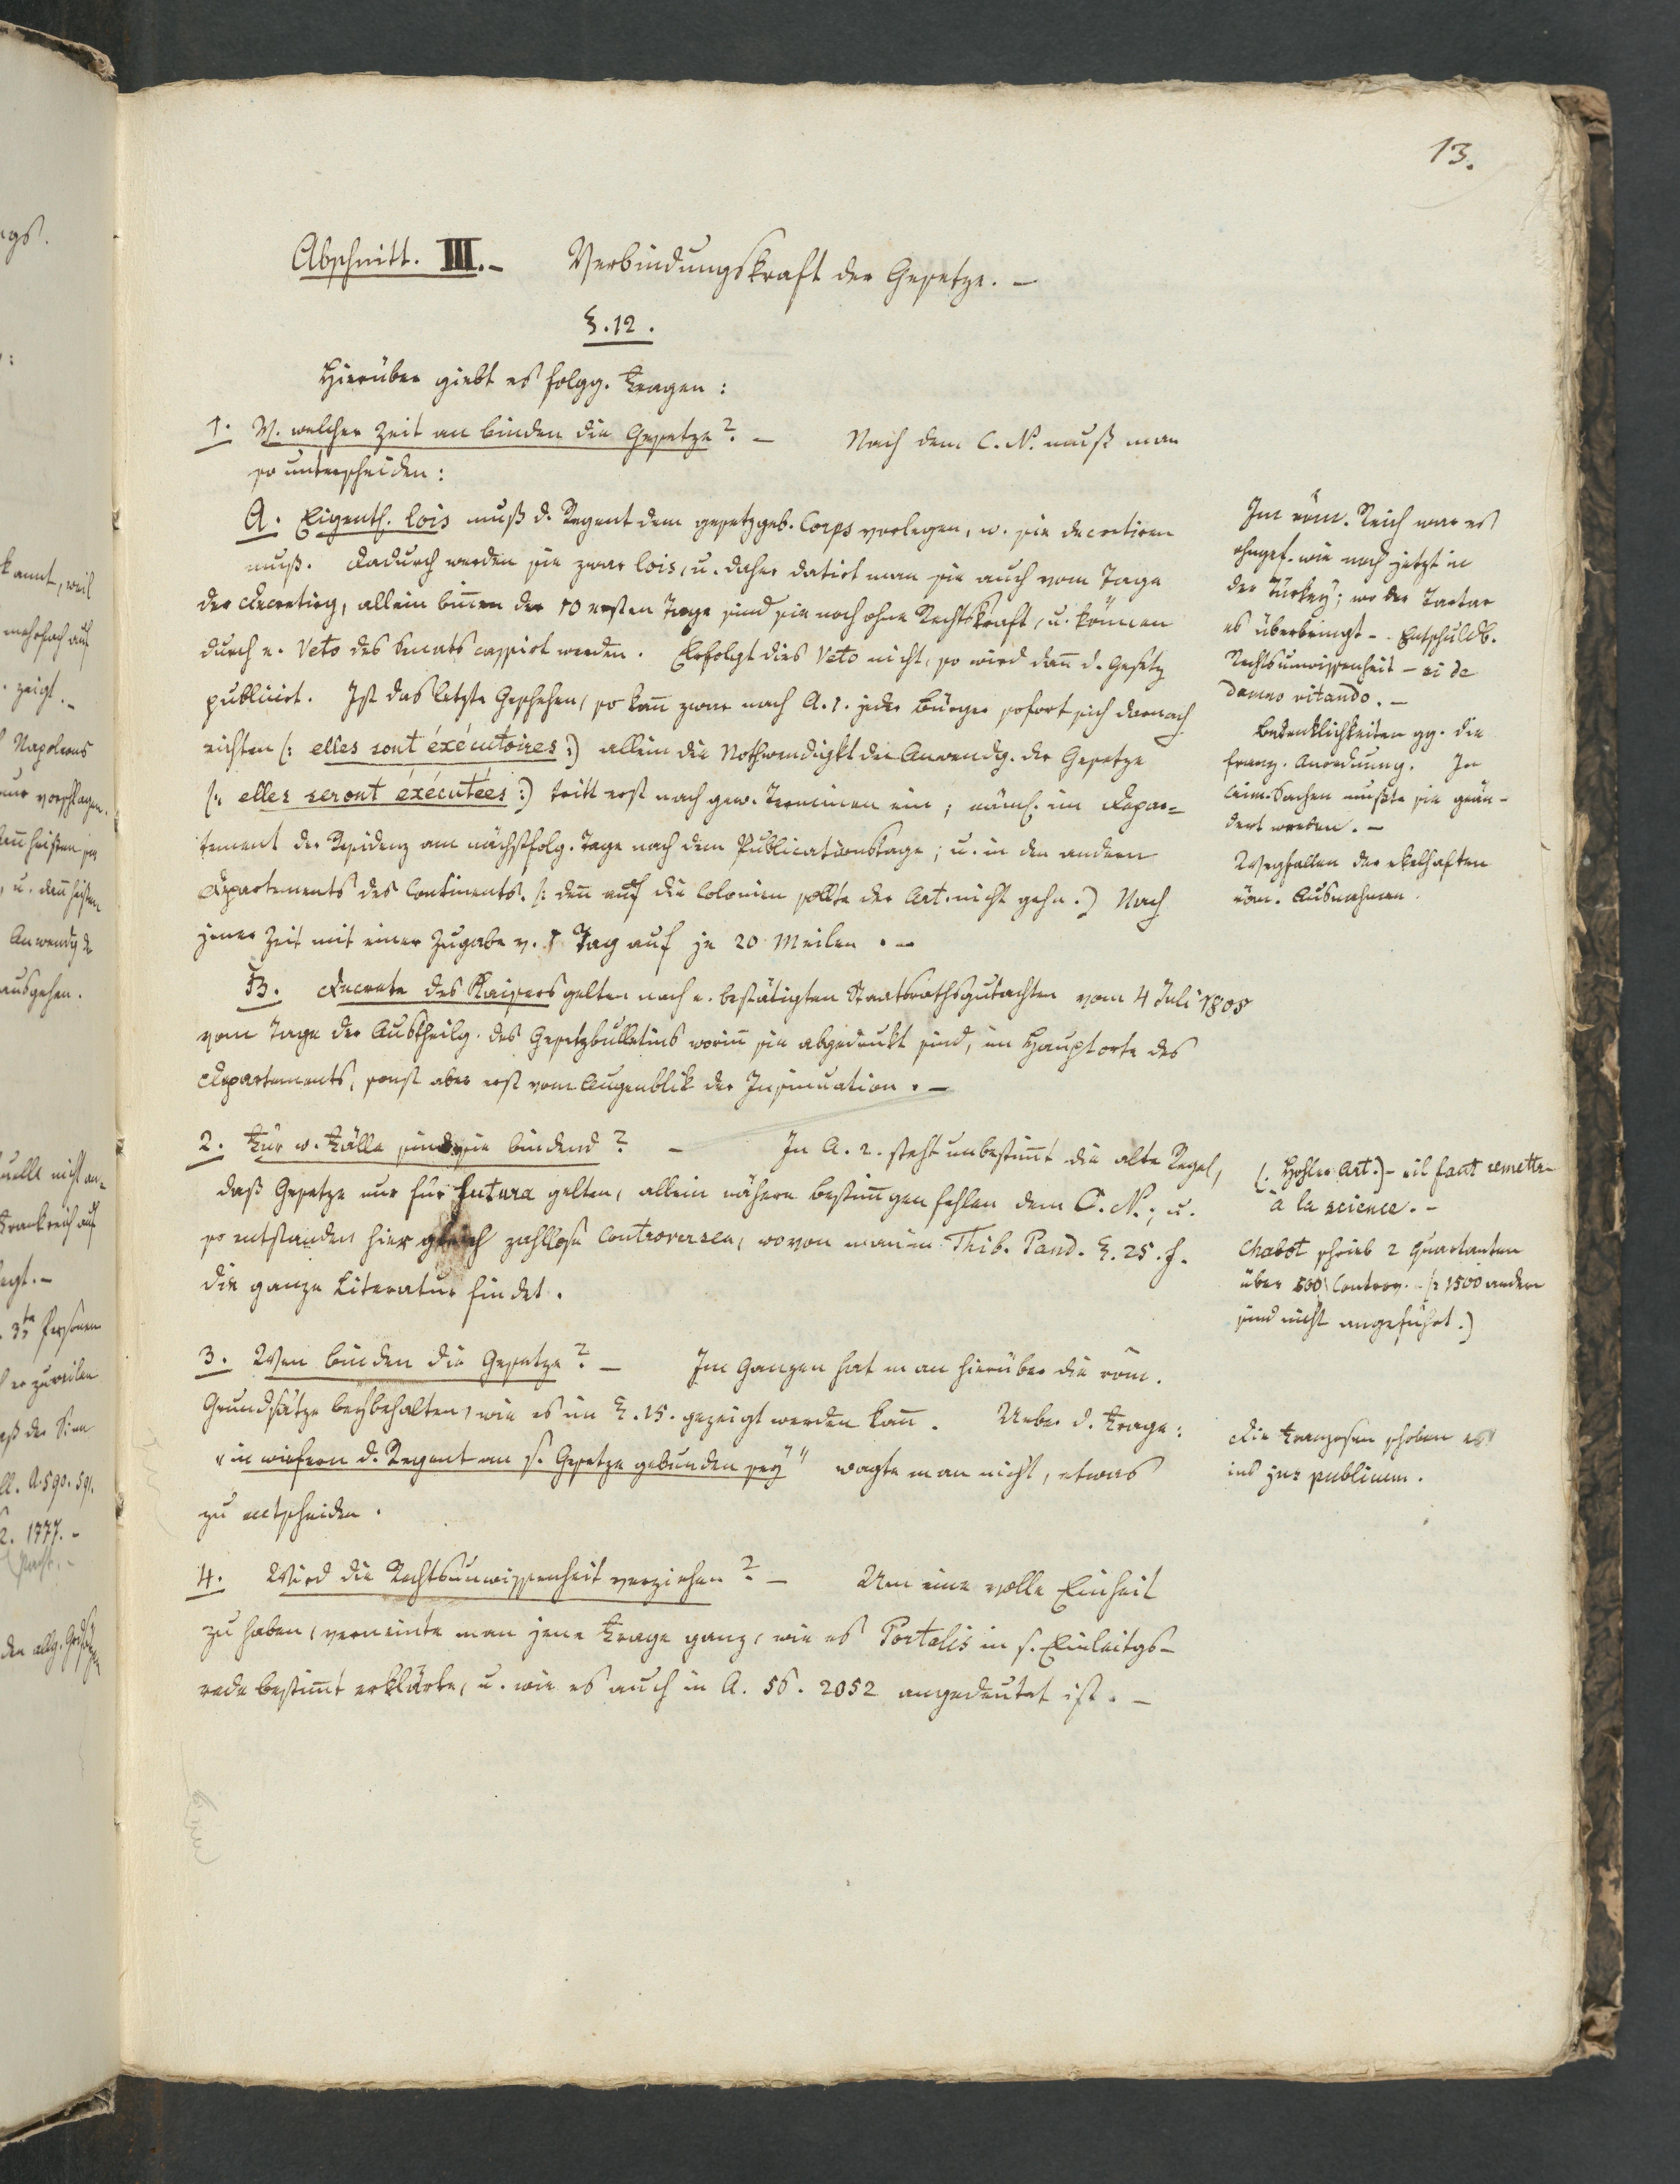 13.
Abschnitt. III. – Verbindungskraft der Gesetze. –
§. 12.
Hierüber giebt es folgg. Fragen:
1. V. welcher Zeit an binden die Gesetze? – Nach dem C. N. muß man
so unterscheiden:
A. Eigenth. lois muß d. Regent dem gesetzgeb. Corps vorlegen, w. sie decretiren
muß. Dadurch werden sie zwar lois, u. daher datirt man sie auch vom Tage
der Decretirg, allein binnen der 10 ersten Tage sind sie noch ohne Rechtskraft, u. können
durch e. Veto des Senats cassirt werden. Erfolgt dies Veto nicht, so wird dann d. Gesetz
publicirt. Ist das letzte Geschehen, so kann zwar nach A. 1. jeder Bürger sofort sich darnach
richten (: elles sont éxécutoires :) allein die Nothwendigkt der Anwendg. der Gesetze
(: elles seront éxécutées :) tritt erst nach gew. Terminen ein; näml. im Depar-
tement der Residenz am nächstfolg. Tage nach dem Publicationstage; u. in den andern
Departements des Continents. (: denn auf die Colonien sollte der Art. nicht gehn.) Nach
jener Zeit mit einer Zugabe v. 1 Tag auf je 20 Meilen. –
B. Decrete des Kaisers gelten nach e. bestätigten Staatsrathsgutachten vom 4 Juli 1805
vom Tage der Austheilg. des Gesetzbulletins worinn sie abgedrukt sind, im Hauptorte des
Departements, sonst aber erst vom Augenblik der Insinuation. –
2. Für w. Fälle sind sie bindend? – In A. 2. steht unbestimmt die alte Regel,
daß Gesetze nur für futura gelten, allein nähere Bestimmgen fehlen dem C. N.; u.
so entstanden hier gleich zahllose Controversen, wovon man im Thib. Pand. §. 25. f.
die ganze Literatur findet.
3. Wen binden die Gesetze? – Im Ganzen hat man hierüber die röm.
Grundsätze beybehalten, wie es im §. 15. gezeigt werden kann. Ueber d. Frage:
"in wiefern d. Regent an s. Gesetze gebunden sey" wagte man nicht, etwas
zu entscheiden.
4. Wird die Rechtsunwissenheit verziehen? – Um eine volle Einheit
zu haben, verneinte man jene Frage ganz, wie es Portalis in s. Einleitgs-
rede bestimmt erklärte, u. wie es auch in A. 56. 2052 angedeutet ist. –
Im röm. Reich war es
ohngef. wie noch jetzt in
der Türkey; wo der Tartar
es überbringt –. Entschuldb.
Rechtsunwissenheit – si de
damno vitando. –
Bedenklichkeiten gg. die
franz. Anordnung. In
Crim. Sachen mußte sie geän-
dert werden. –
Wegfallen der ekelhaften
röm. Ausnahmen.
(: Hohler Art.) – il faut remettre
à la science. –
Chabot schrieb 2 Quartanten
über 500 Controv. – (: 1500 andere
sind nicht angeführt.)
Die Franzosen schoben es
ins jus publicum.